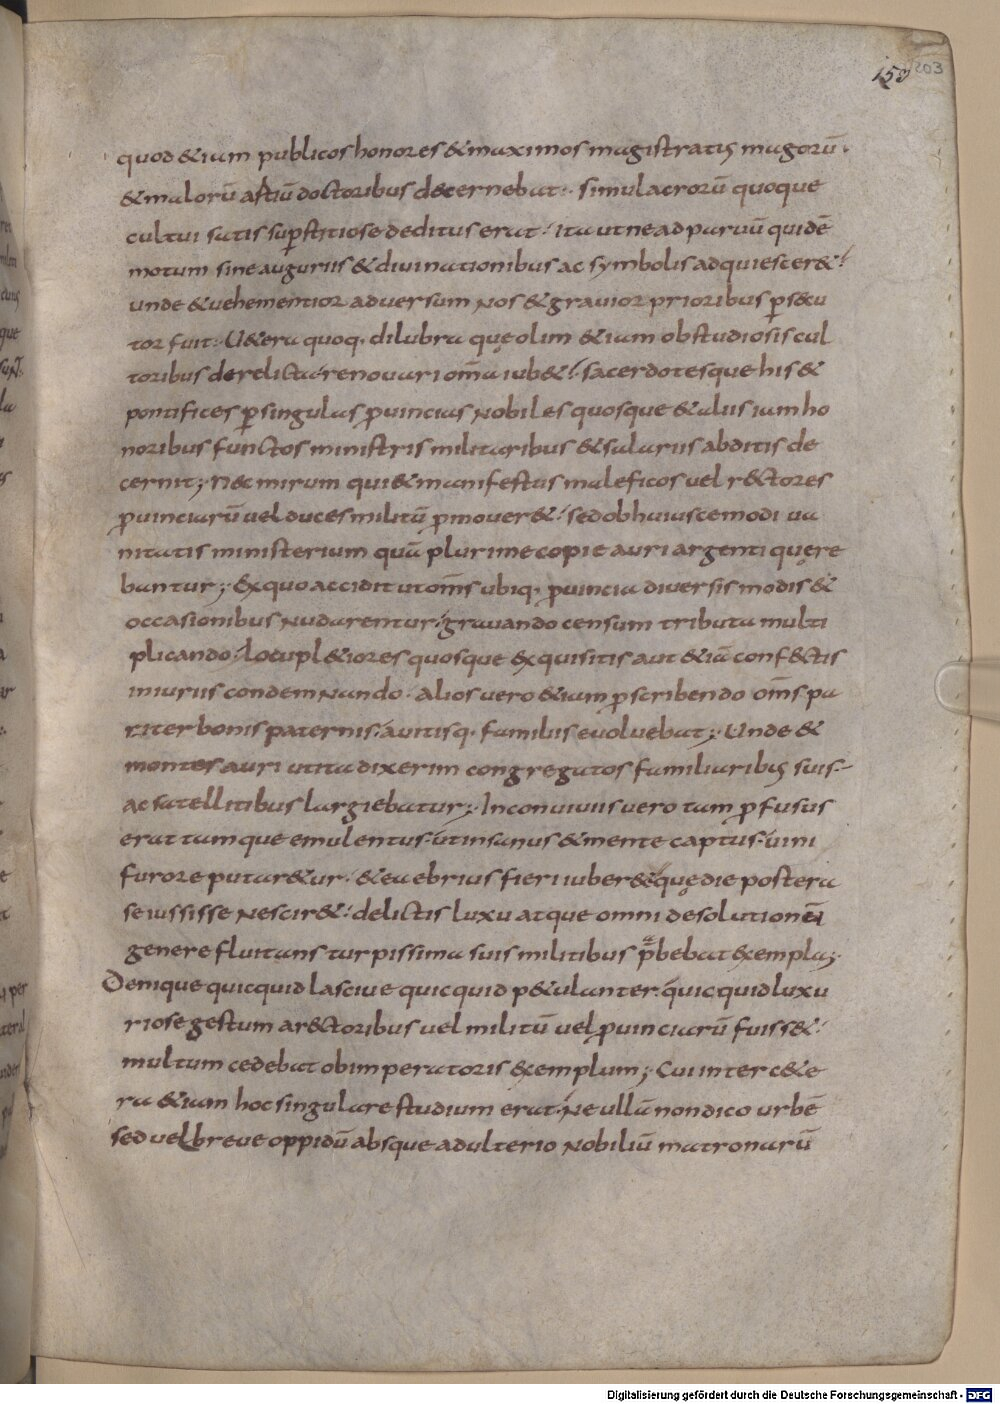 159 203
quod &iam publicos honores & maximos magistratis magorū.
& malorū artiū doctoribus decernebat. simulacrorū quoque
cultui satis suꝑstitiose deditus erat. ita ut ne ad paruū quidē
motum sine auguriis & diuinationibus ac symbolis adquiescer&.
unde & uehementior aduersum nos & grauior prioribus ꝑsecu
tor fuit. U&era quoq. dilubra quę olim &iam ob studiosis cul
toribus derelicta renouari om̄a iub&. sacerdotesque his &
pontifices ꝑ singulas ꝓuincias nobiles quosque & aliis iam ho
noribus functos ministris militaribus & salariis abditis de
cernit; nec mirum qui & manifestus maleficos uel rectores
ꝓuinciarū uel duces militū ꝓmouer&. sed ob huiuscemodi ua
nitatis ministerium quā plurime copie auri argenti quęre
bantur; Ex quo accidit ut om̄s ubiq. ꝓuincia diuersis modis &
occasionibus nudarentur. grauando censum tributa multi
plicando. locupl&iores quosque exquisitis aut &iā confectis
iniuriis condemnando. alios uero &iam ꝓscribendo om̄s pa
riter bonis paternis. auitisq. familiis euoluebat; Unde &
montes auri ut ita dixerim congregatos familiaribus suis
ac satellitibus largiebatur; In conuiuiis uero tam ꝓfusus
erat tamque emulentus. ut insanus & mente captus. uini
furore putar&ur. & ea ebrius fieri iuber& quę die postera
se iussisse nescir&. delictis luxu atque omni desolutionei
genere fluitans turpissima suis militibus p̄bebat exempla;
Denique quicquid lasciue quicquid p&ulanter. quicquid luxu
riose gestum a rectoribus uel militū uel ꝓuinciarū fuiss&.
multum cedebat ob imperatoris exemplum; Cui inter c&e
ra &iam hoc singulare studium erat. Ne ullā non dico urbē
sed uel breue oppidū absque adulterio nobiliū matronarū
Digitalisierung gefördert durch die Deutsche Forschungsgemeinschaft - DFG